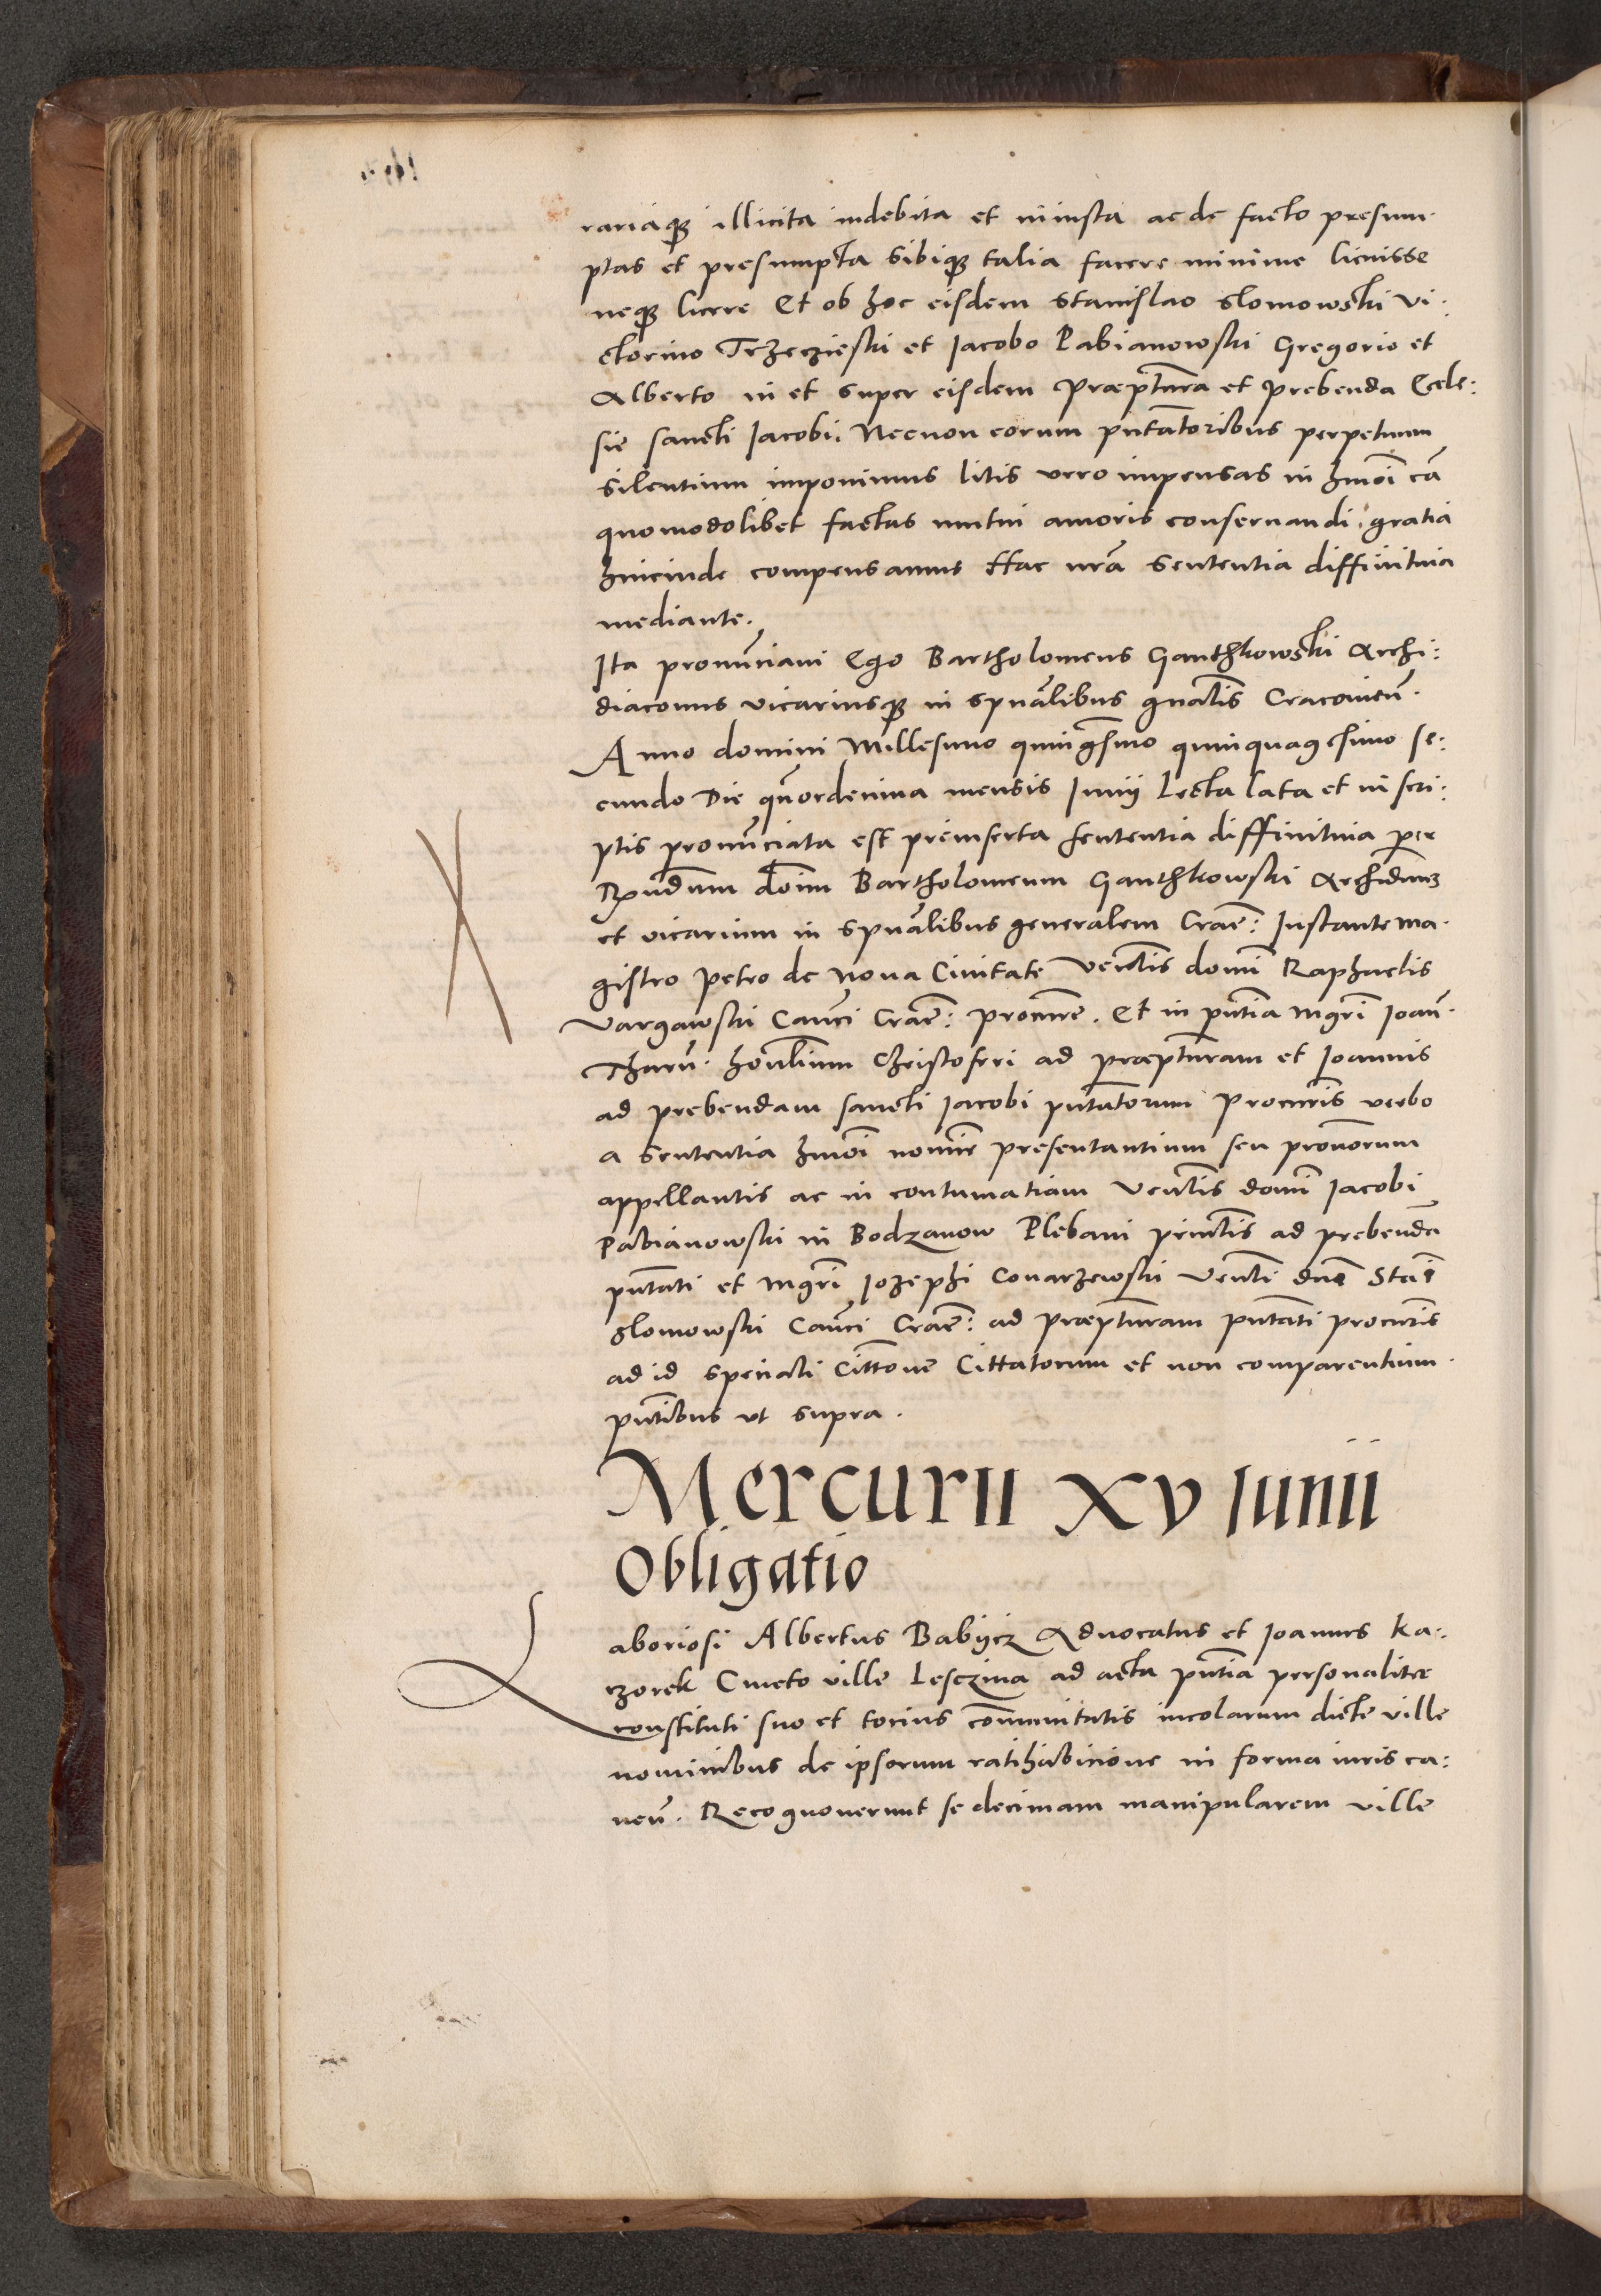 rariaq₃ illicita indebita et iniusta ac de facto presum·
ptas et presumpta sibiq₃ talia facere minime licuisse
neq₃ licere Et ob hoc eisdem Stanislao Slomowski Vi·
ctorino Trzeczieski et Iacobo Pabianowski Gregorio et
Alberto in et super eisdem Præptura et prebenda Eccle:
sie sancti Iacobi. Necnon eorum pntatoribus perpetuum
silentium imponimus litis vero impensas in hmoi cā
quomodolibet factas mutui amoris conseruandi gratia
hincinde compensamus Hac nrā sententia diffinitiua
mediante.
Ita pronunciaui Ego Bartholomeus Ganthkowski Archi:
diaconus vicariusq₃ in spualibus gnalis Cracouień.
Anno domini Millesimo quingesimo quinquagesimo se:
cundo Die quordecima mensis Iunij Lecta lata et in scri:
ptis pronunciata est preinserta sententia diffinitiua per
Rndum dnm Bartholomeum Ganthkowski Archidnum
et vicarium in spualibus generalem Crac̄: Instante ma·
gistro Petro de Noua Ciuitate Venlis domi Raphaelis
Vargawski Canci Crac̄: procure. Et in pntia mgri Ioan̄·
Tharn̄· honlium Christoferi ad præpturam et Ioannis
ad prebendam sancti Iacobi pntatorum Procuris verbo
a sententia hmoi nomine presentantium seu pronorum
appellantis ac in contumatiam Venlis domi Iacobi
Pabianowski in Bodzanow Plebani princlis ad prebendā
pntati et mgri Iozephi Conarzewski Venli dni Stai
Slomowski Canci Crac̄: ad præpturam pntati procuris
ad id speciali Cittone Cittatorum et non comparentium.
pntibus vt supra.
Mercurii XV Iunii
Obligatio
Laboriosi Albertus Babijcz Aduocatus et Ioannes Ka:
czorek Cmeto ville Lesczina ad acta pntia personaliter
constituti suo et tocius communitatis incolarum dicte ville
nominibus de ipsorum ratihabicione in forma iuris ca:
nen̄. Recognouerunt se decimam manipularem ville